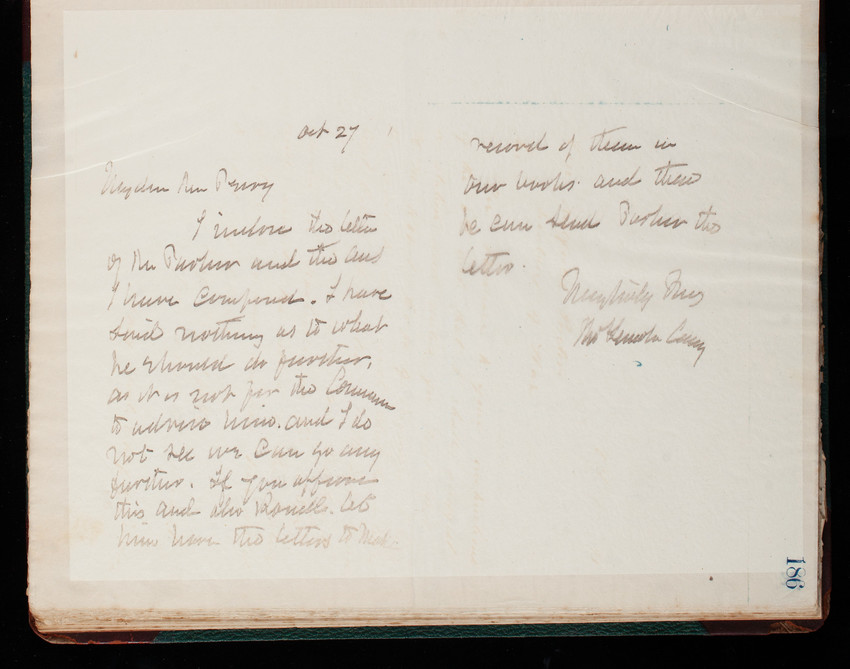 Oct 27
My dear Mr Perry
I inclose the letter
of Mr Parker and the ans
I have composed. I have
said nothing as to what
he should do further,
as it is not for the Commn
to advise him. and I do
not see we can go any
further. If you approve
this and also let
him have the letters to make
record of them in
our books. and then
he can send Parker the
letter.
Very truly Yrs
Thos Lincoln Casey
186